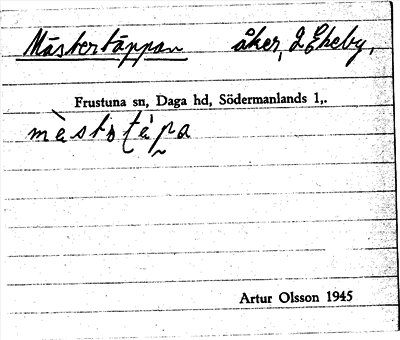 Mästertäppan åker, L Eheby,
Frustuna sn, Daga hd, Södermanlands l,.
mὲstətápa
Artur Olsson 1945